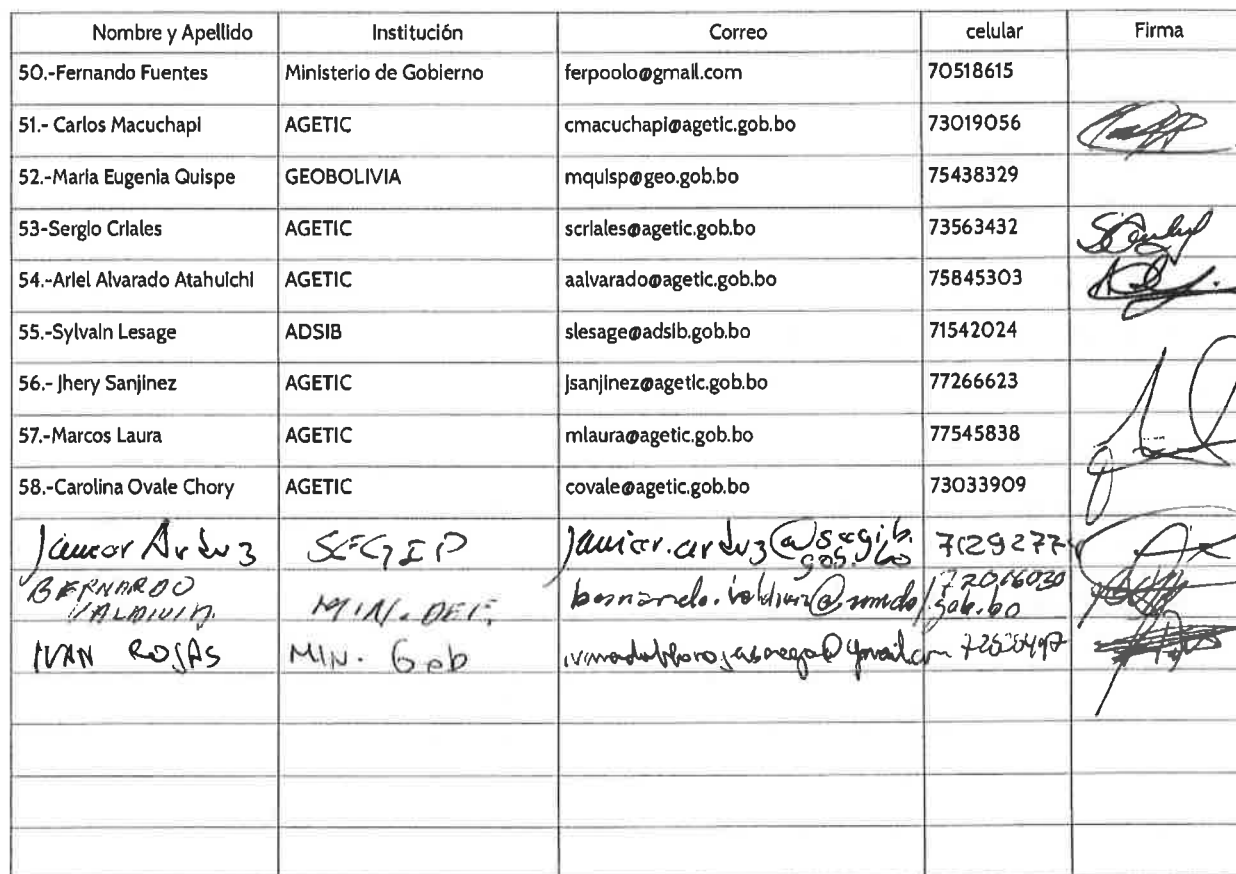 Nombre y Apellido Institución Correo celular Firma
50.-Fernando Fuentes Ministerio de Gobierno ferpoolo@gmail.com 70518615
51.- Carlos Macuchapi AGETIC cmacuchapi@agetic.gob.bo 73019056
52.-Maria Eugenia Quispe GEOBOLIVIA mquisp@geo.gob.bo 75438329
53-Sergio Criales AGETIC scriales@agetic.gob.bo 73563432
54.-Ariel Alvarado Atahuichi AGETIC aalvarado@agetic.gob.bo 75845303
55.-Sylvain Lesage ADSIB slesage@adsib.gob.bo 71542024
56.- Jhery Sanjinez AGETIC jsanjinez@agetic.gob.bo 77266623
57.-Marcos Laura AGETIC mlaura@agetic.gob.bo 77545838
58.-Carolina Ovale Chory AGETIC covale@agetic.gob.bo 73033909
Arduz SEGIP 7129277
BERNARDO MIN. DEF. 72016020
VALDIVIA gob.bo
IVAN ROJAS MIN. Gob